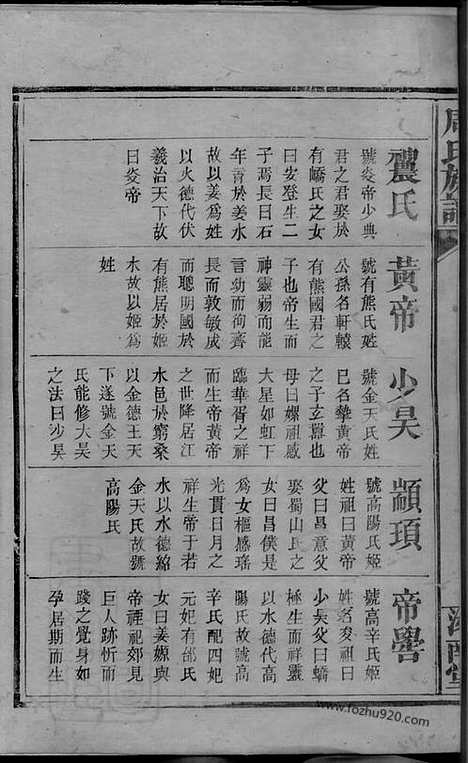 周氏族譜
農氏
號炎帝少典
君之君娶於
有嶠氏之女
曰安登生二
子焉長曰石
年育於姜水
故以姜爲姓
以火德代伏
羲治天下故
曰炎帝
黃帝
號有熊氏姓
公孫名軒轅
有熊國君之
子也帝生而
神靈弱而能
言幼而徇齊
長而敦敏成
而聰明國於
有熊居於姬
水故以姬爲
姓
少昊
號金天氏姓
巳名摯黃帝
之子玄囂也
母曰嫘祖感
大星如虹下
臨華胥之祥
而生帝黃帝
之世降居江
水邑於窮桑
以金德王天
下遂號金天
氏能修大昊
之法曰沙昊
顓頊
號高陽氏姬
姓祖曰黃帝
父曰昌意父
娶蜀山氏之
女曰昌僕是
爲女樞感瑤
光貫日月之
祥生帝于若
水以水德紹
金天氏故號
高陽氏
帝嚳
號高辛氏姬
姓名夋祖曰
少昊父曰蟜
極生而祥靈
以木德代高
陽氏故號高
辛氏配四妃
元妃有邰氏
女曰姜嫄與
帝禋祀郊見
巨人跡忻而
踐之覺身如
孕居期而生
www.fozhu920.com